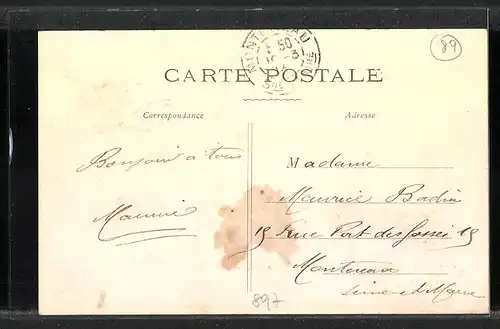 89
MONTEREAU
CARTE POSTALE
Correspondance
Adresse
Bonjour à tous
Maurice
Madame
Maurice Badin
15 Rue Port des fossés 15
Montereau
Seine et Marne
897